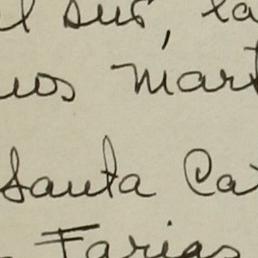 l sur, la
uos mart
Santa Ca
Farias